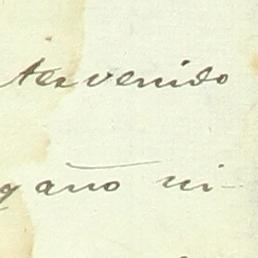 tervenido
gaño ni-